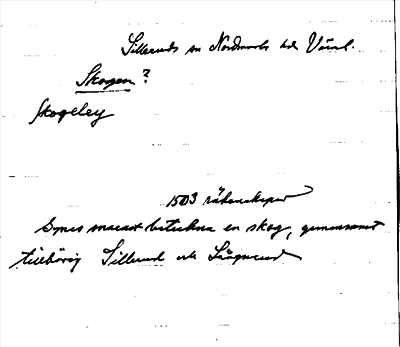 Silleruds sn Nordmarks hd Värml.
Skogen?
Skogeley
1503 räkenskaper
Synes snarast beteckna en skog, gemensamt
tillhörig Sillerud och Långserud